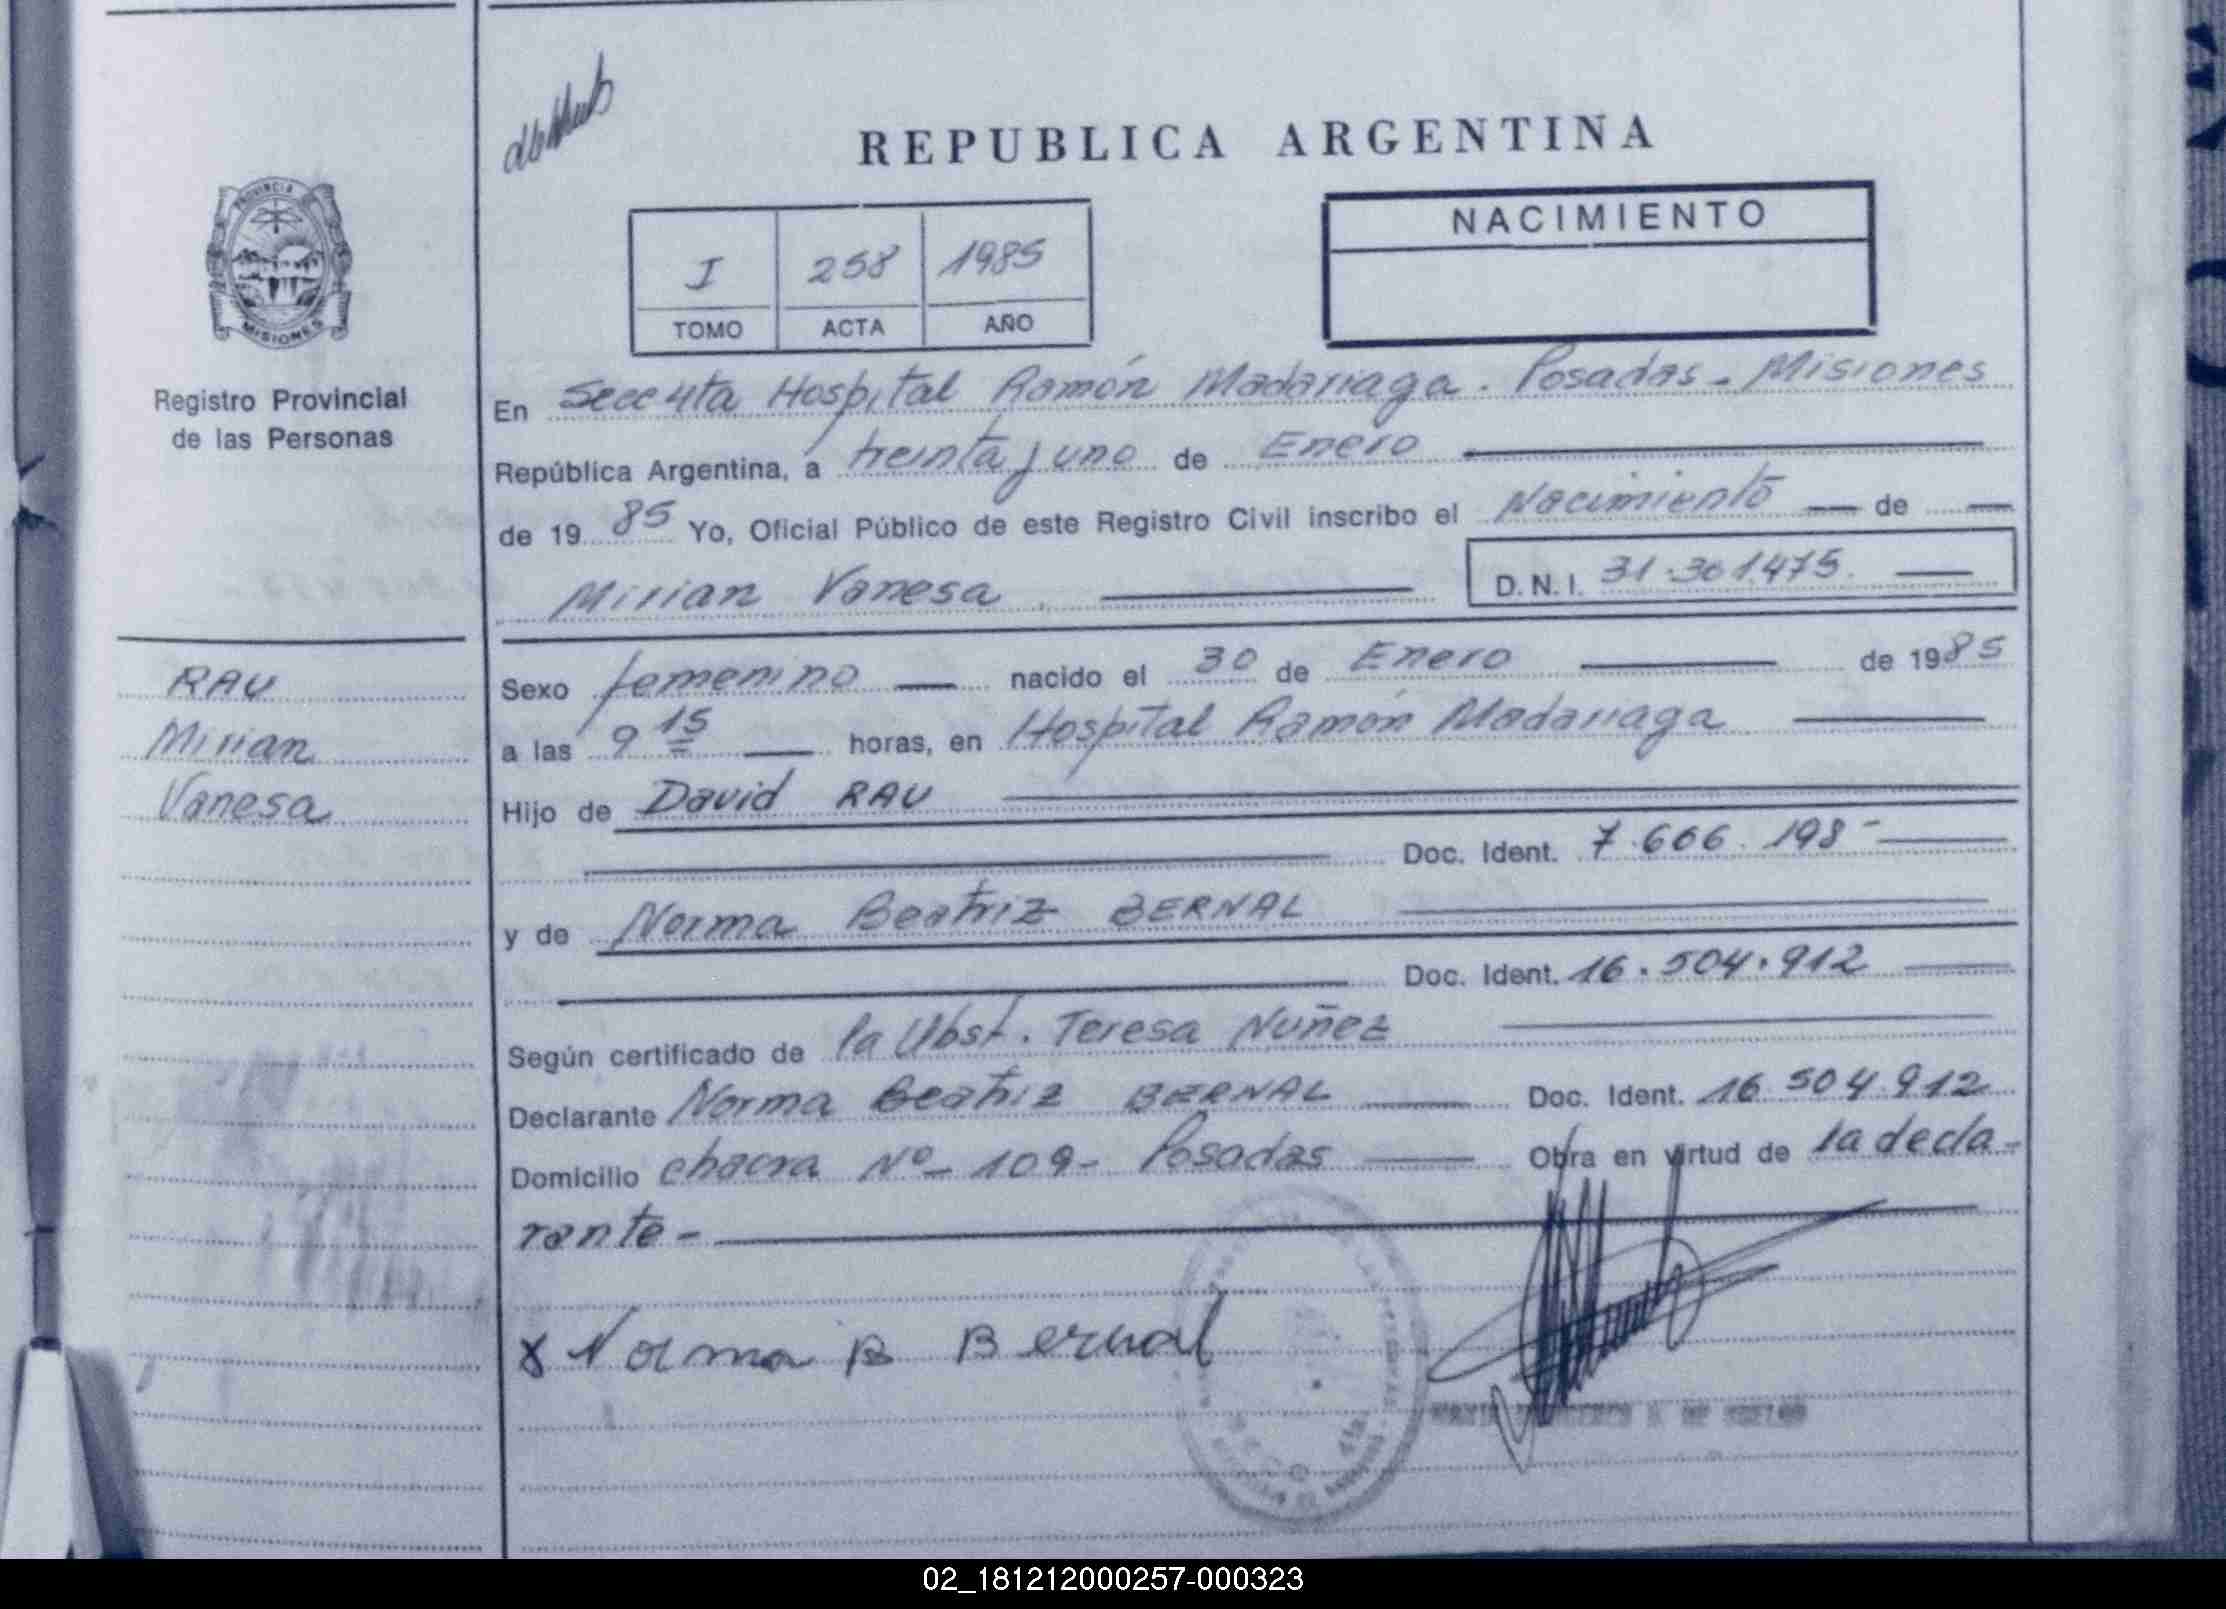 REPUBLICA ARGENTINA
PROVINCIA
MISIONES
Registro Provincial
de las Personas
I 258 1985
TOMO ACTA AÑO
NACIMIENTO
En Secc 4ta Hospital Ramón Madariaga. Posadas - Misiones
República Argentina, a treinta y uno de Enero
de 1985 Yo, Oficial Público de este Registro Civil inscribo el Nacimiento — de —
Mirian Vanesa
D.N.I. 31.301.475.
RAU
Mirian
Vanesa
Sexo femenino — nacido el 30 de Enero — de 1985
a las 9 15 — horas, en Hospital Ramón Madariaga
Hijo de David RAU
Doc. Ident. 7.606.198-
y de Norma Beatriz BERNAL
Doc. Ident. 16.504.912
Según certificado de la Obst. Teresa Nuñez
Declarante Norma Beatriz BERNAL — Doc. Ident. 16.504.912
Domicilio chacra Nº- 109- Posadas — Obra en virtud de la decla-
rante-
x Norma B Bernal
02_181212000257-000323